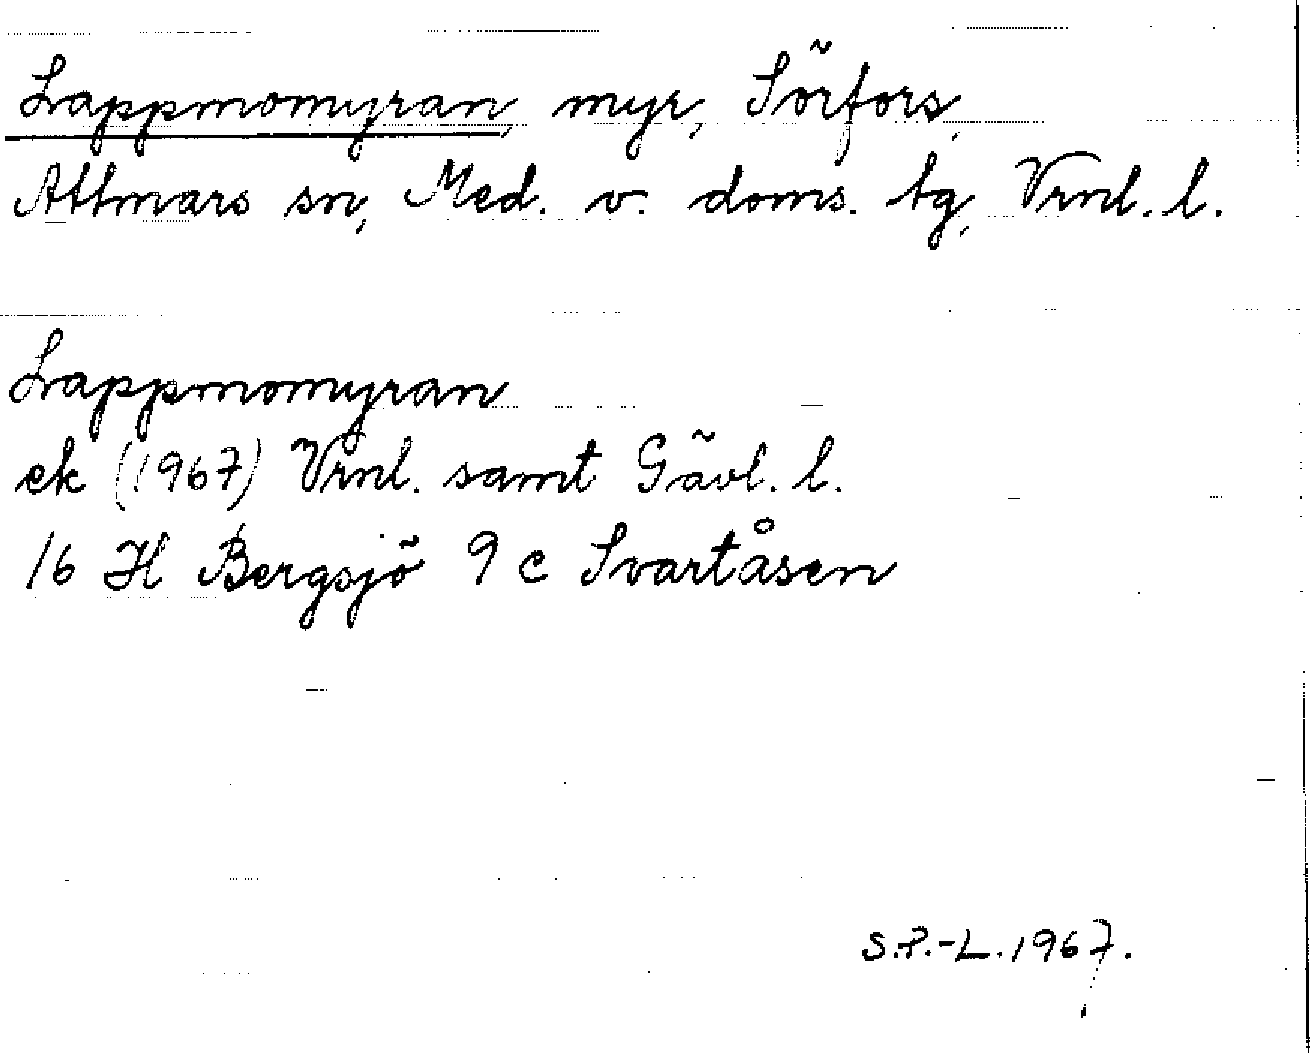 Lappmomyran, myr, Sörfors,
Attmars sn, Med. v. doms. tg, Vrnl. l.
Lappmomyran
ek (1967) Vrnl. samt Gävl. l.
16 H Bergsjö 9 c Svartåsen
S.P.-L. 1967.